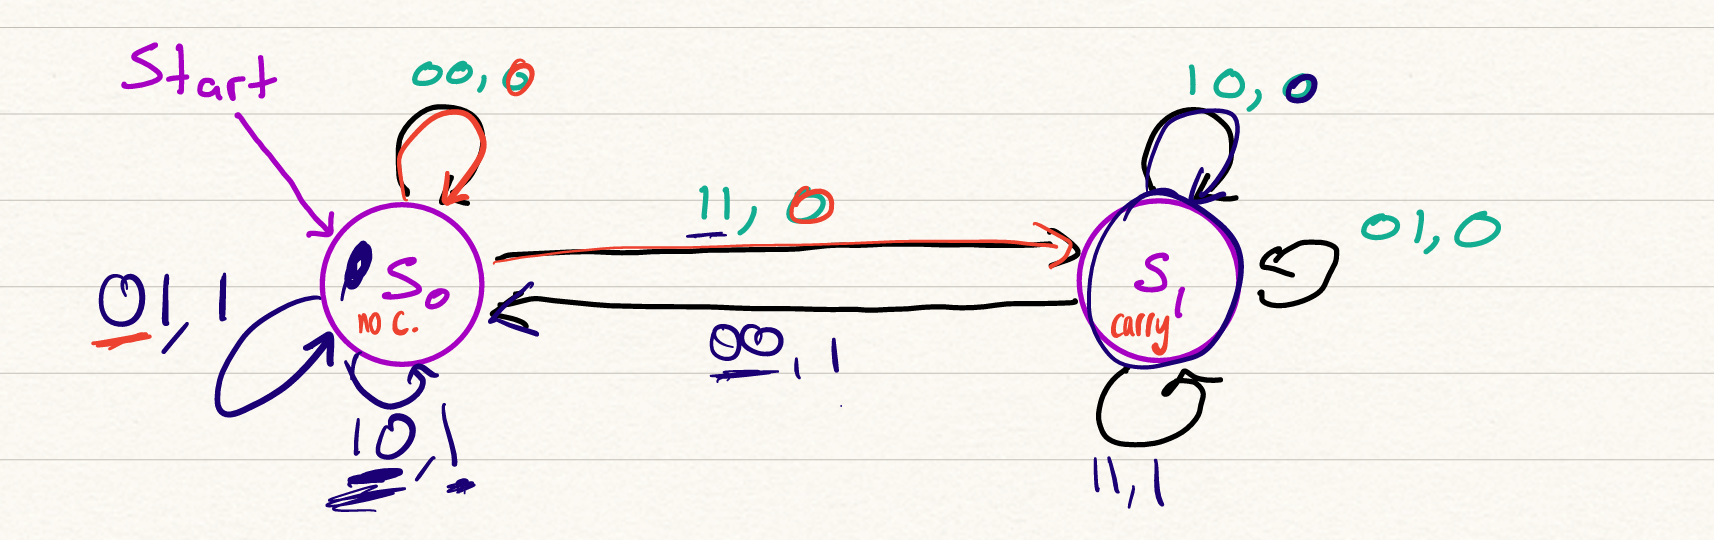 Start
00, 0
10, 0
11, 0
01, 0
S0
no c.
S1
carry
01, 1
00, 1
10, 1
11, 1